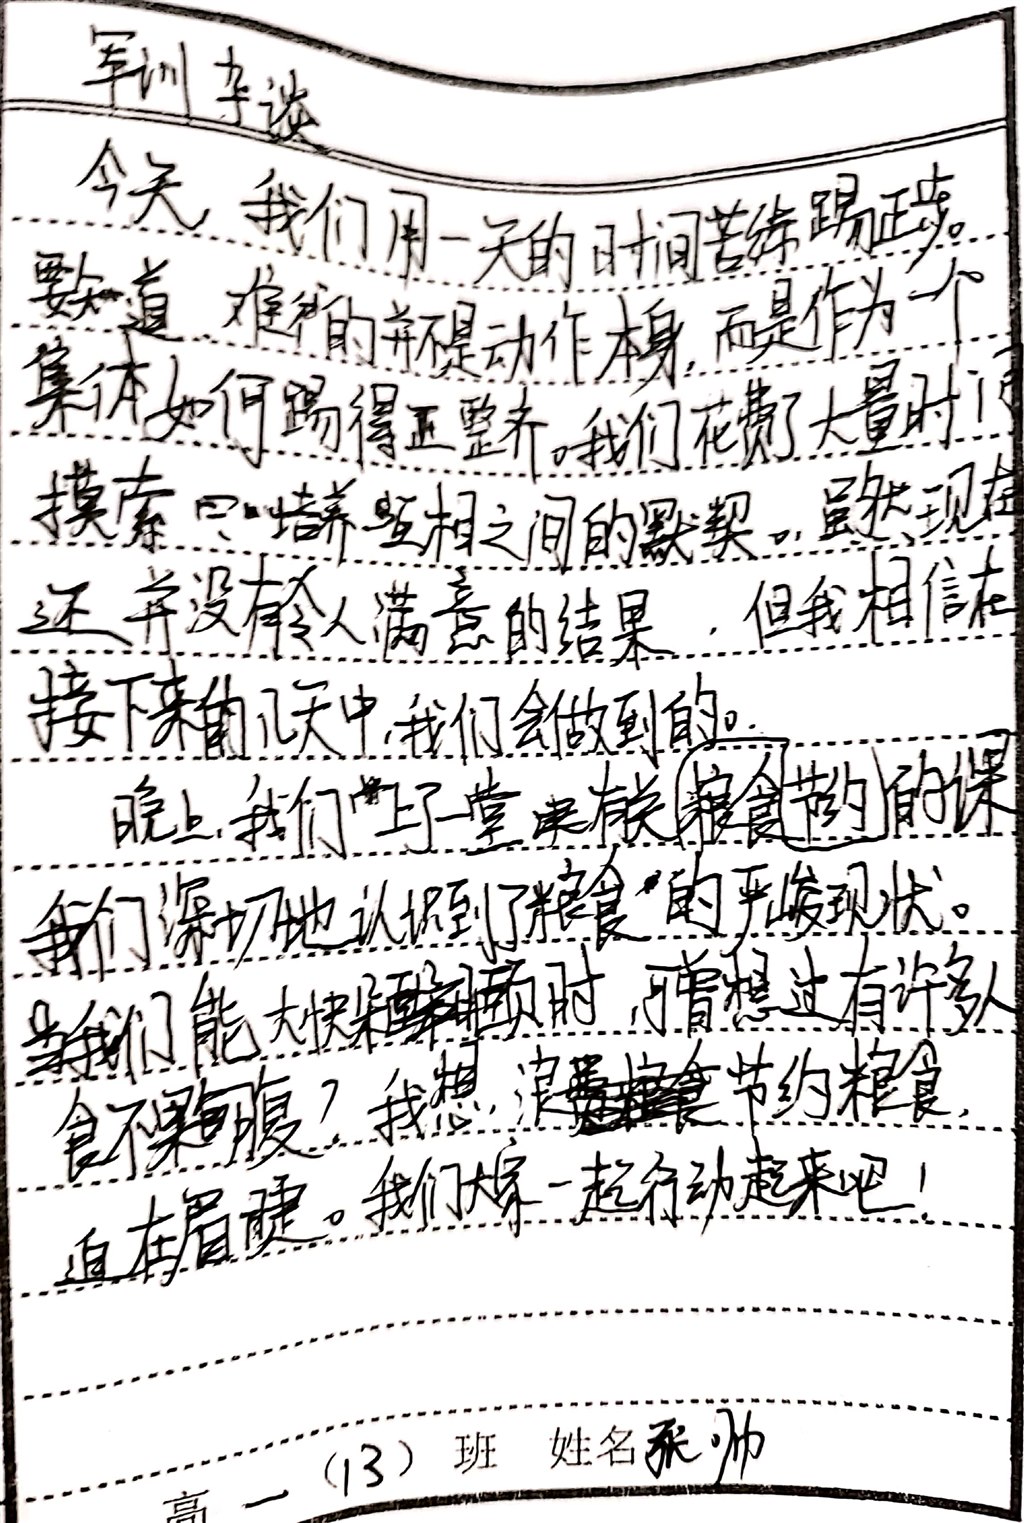 军训杂谈
今天,我们用一天的时间苦练踢正步。
要知道,难的并不是动作本身,而是作为一个
集体如何踢得正整齐。我们花费了大量时间
摸索、培养互相之间的默契。虽然现在
还并没有令人满意的结果,但我相信在
接下来的几天中,我们会做到的。
晚上,我们上了一堂有关粮食节约的课
我们深切地认识到了粮食的严峻现状。
当我们能大快朵颐时,可曾想过有许多人
食不果腹?我想,节约粮食,
迫在眉睫。我们大家一起行动起来吧!
高一(13)班 姓名张帅